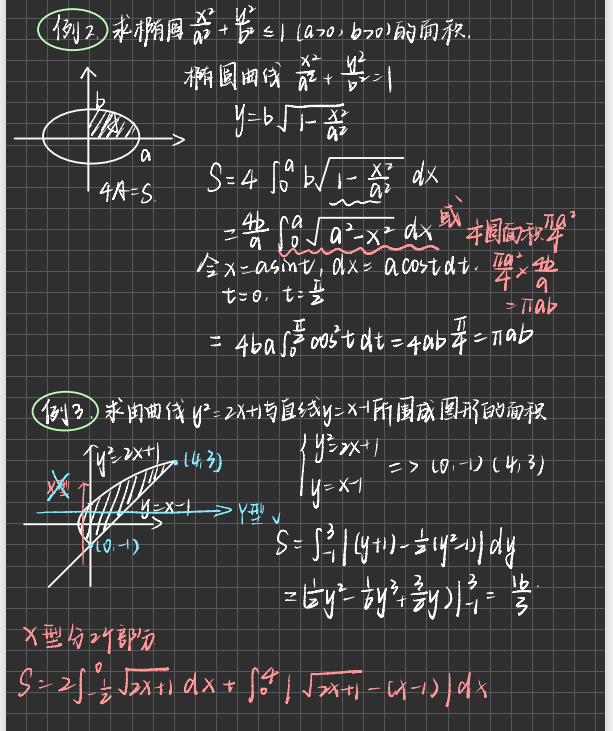 例2. 求椭圆 x²/a² + y²/b² ≤ 1 (a>0, b>0)的面积.
椭圆曲线 x²/a² + y²/b² = 1
y = b√(1 - x²/a²)
b
A
a
4A = S.
S = 4∫₀ᵃ b√(1 - x²/a²) dx
= 4b/a ∫₀ᵃ √(a² - x²) dx 或 圆面积 πa²/4
令 x = asint, dx = acost dt. πa²/4 × 4b/a
t = 0, t = π/2 = πab
= 4ba∫₀^(π/2) cos²t dt = 4ab π/4 = πab
例3. 求由曲线 y² = 2x+1 与直线 y = x-1 所围成图形的面积
y² = 2x+1
(4,3)
X型
y = x-1
Y型 √
(0,-1)
{ y² = 2x+1
y = x-1 => (0,-1) (4,3)
S = ∫₋₁³ |(y+1) - ½(y²-1)| dy
= (½y² - ⅙y³ + 3/2 y)|₋₁³ = 16/3.
X型分2个部分
S = 2∫_(-½)^0 √(2x+1) dx + ∫₀⁴ |√(2x+1) - (x-1)| dx